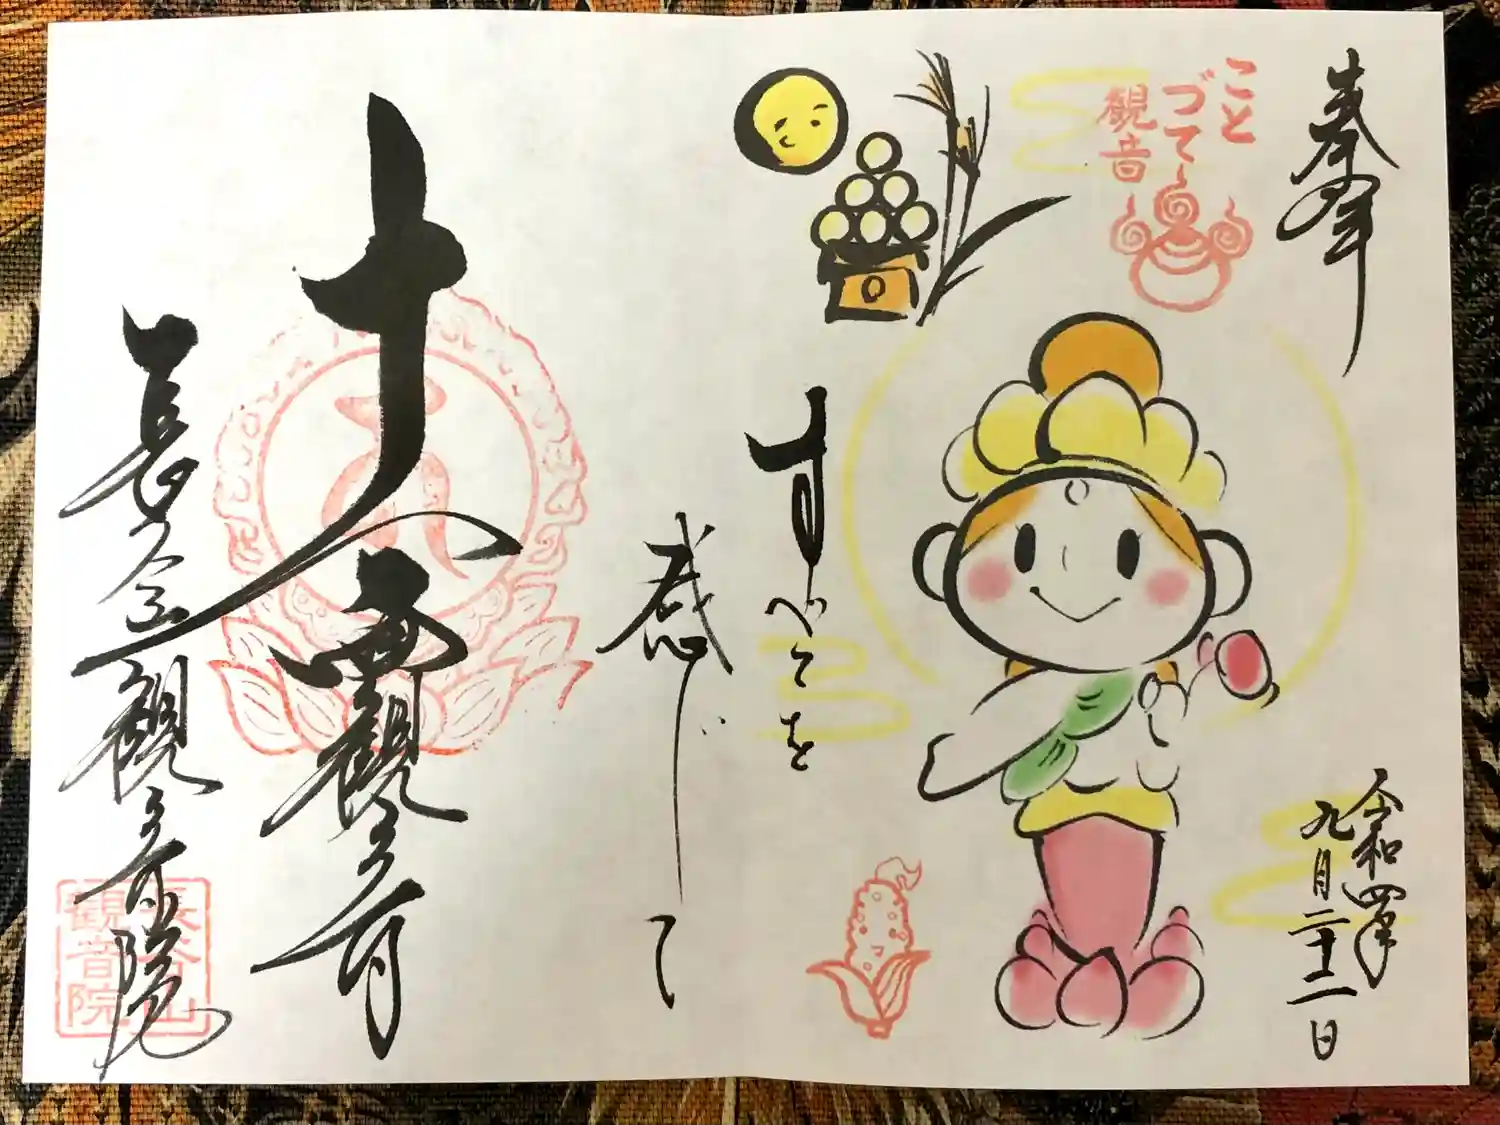 奉拝
令和四年
九月二十二日
ことづて
観音
すべてを
感じて
十一面観音
長谷山観音院
長谷山
観音院